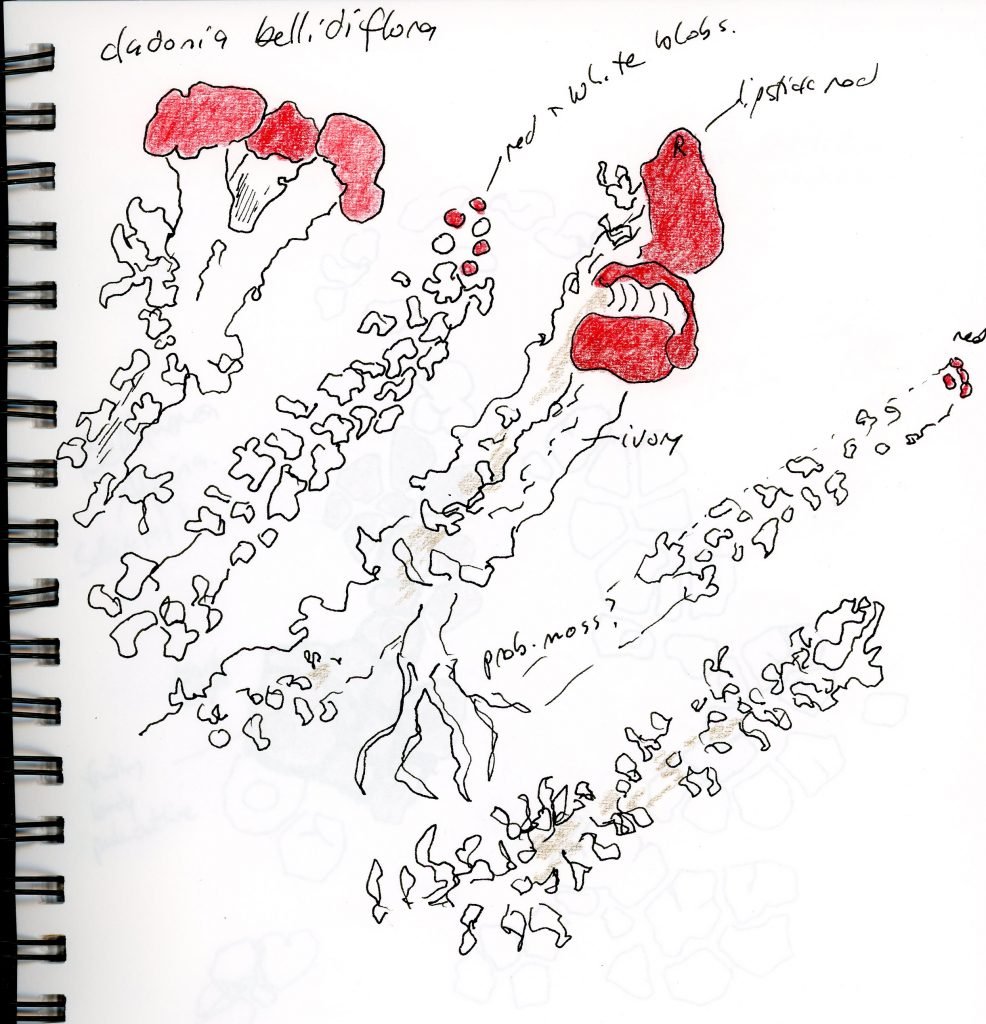 cladonia bellidiflora
red + white blobs.
lipstick red
red
ivory
prob. moss?
R